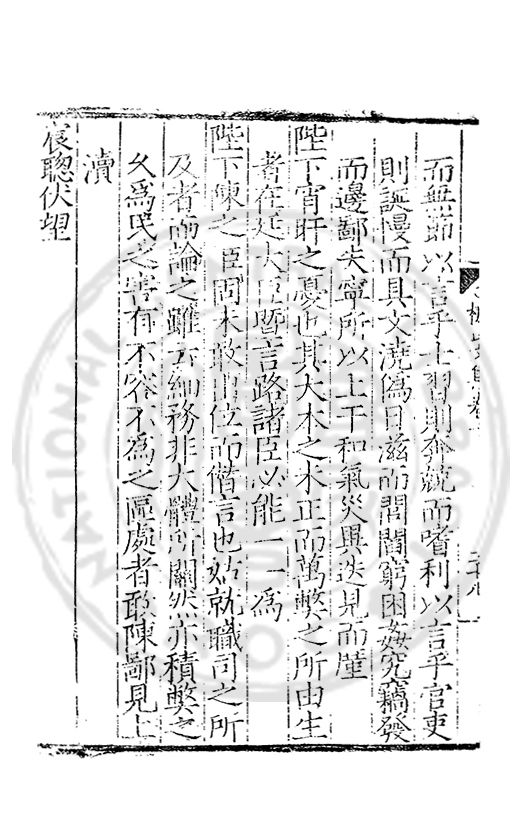 而無節以言乎士習則奔競而嗜利以言乎官吏
則誕慢而具文澆僞日滋而閭閻窮困姦宄竊發
而邊鄙失寧所以上干和氣災異迭見而廑
陛下宵旰之憂也其大本之未正而萬弊之所由生
者在廷大臣曁言路諸臣必能一一爲
陛下陳之臣固未敢出位而僭言也姑就職司之所
及者而論之雖云細務非大體所關然亦積弊之
久爲民之害有不容不爲之區處者敢陳鄙見上
瀆
宸聰伏望
NATIONAL